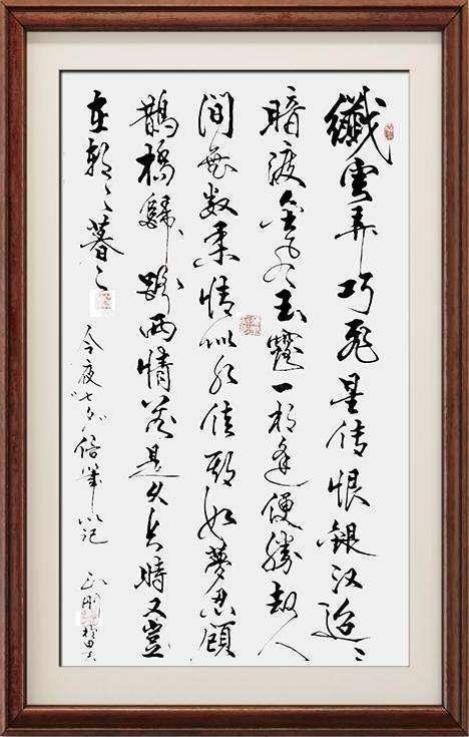 纖雲弄巧飛星传恨銀汉迢〻
暗渡金风玉露一相逢便勝却人
间無数柔情似水佳期如夢忍顧
鵲橋歸路两情若是久长時又豈
在朝〻暮〻
今夜“七夕”倍筆以记